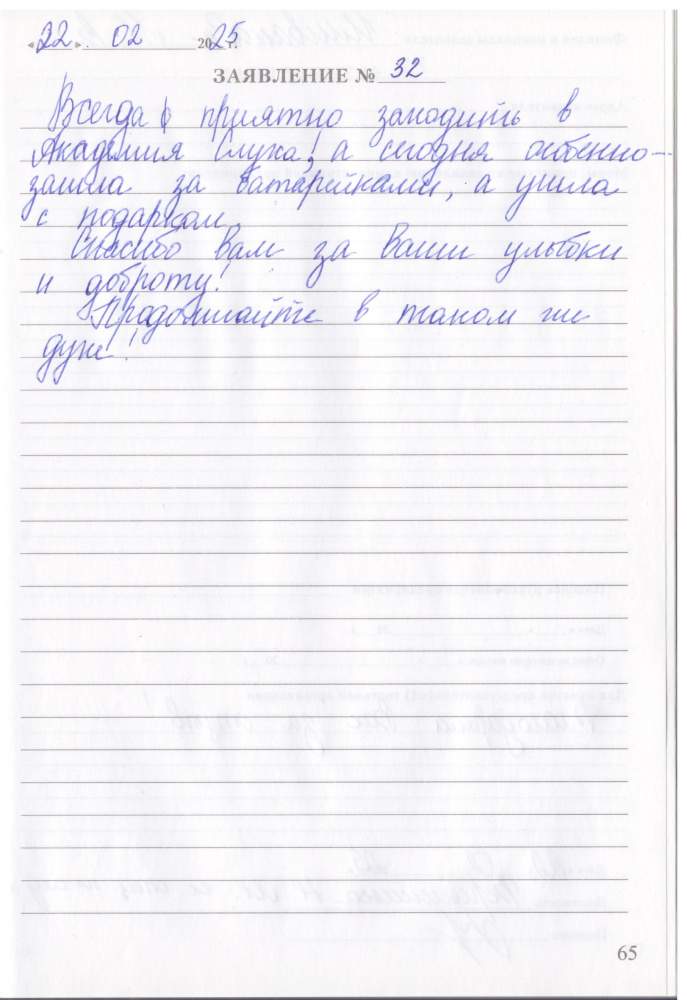 «22». 02 2025 г.
ЗАЯВЛЕНИЕ № 32
Всегда приятно заходить в
Академия Слуха! а сегодня особенно -
зашла за батарейками, а ушла
с подарком.
Спасибо вам за ваши улыбки
и доброту!
Продолжайте в таком же
духе!
65